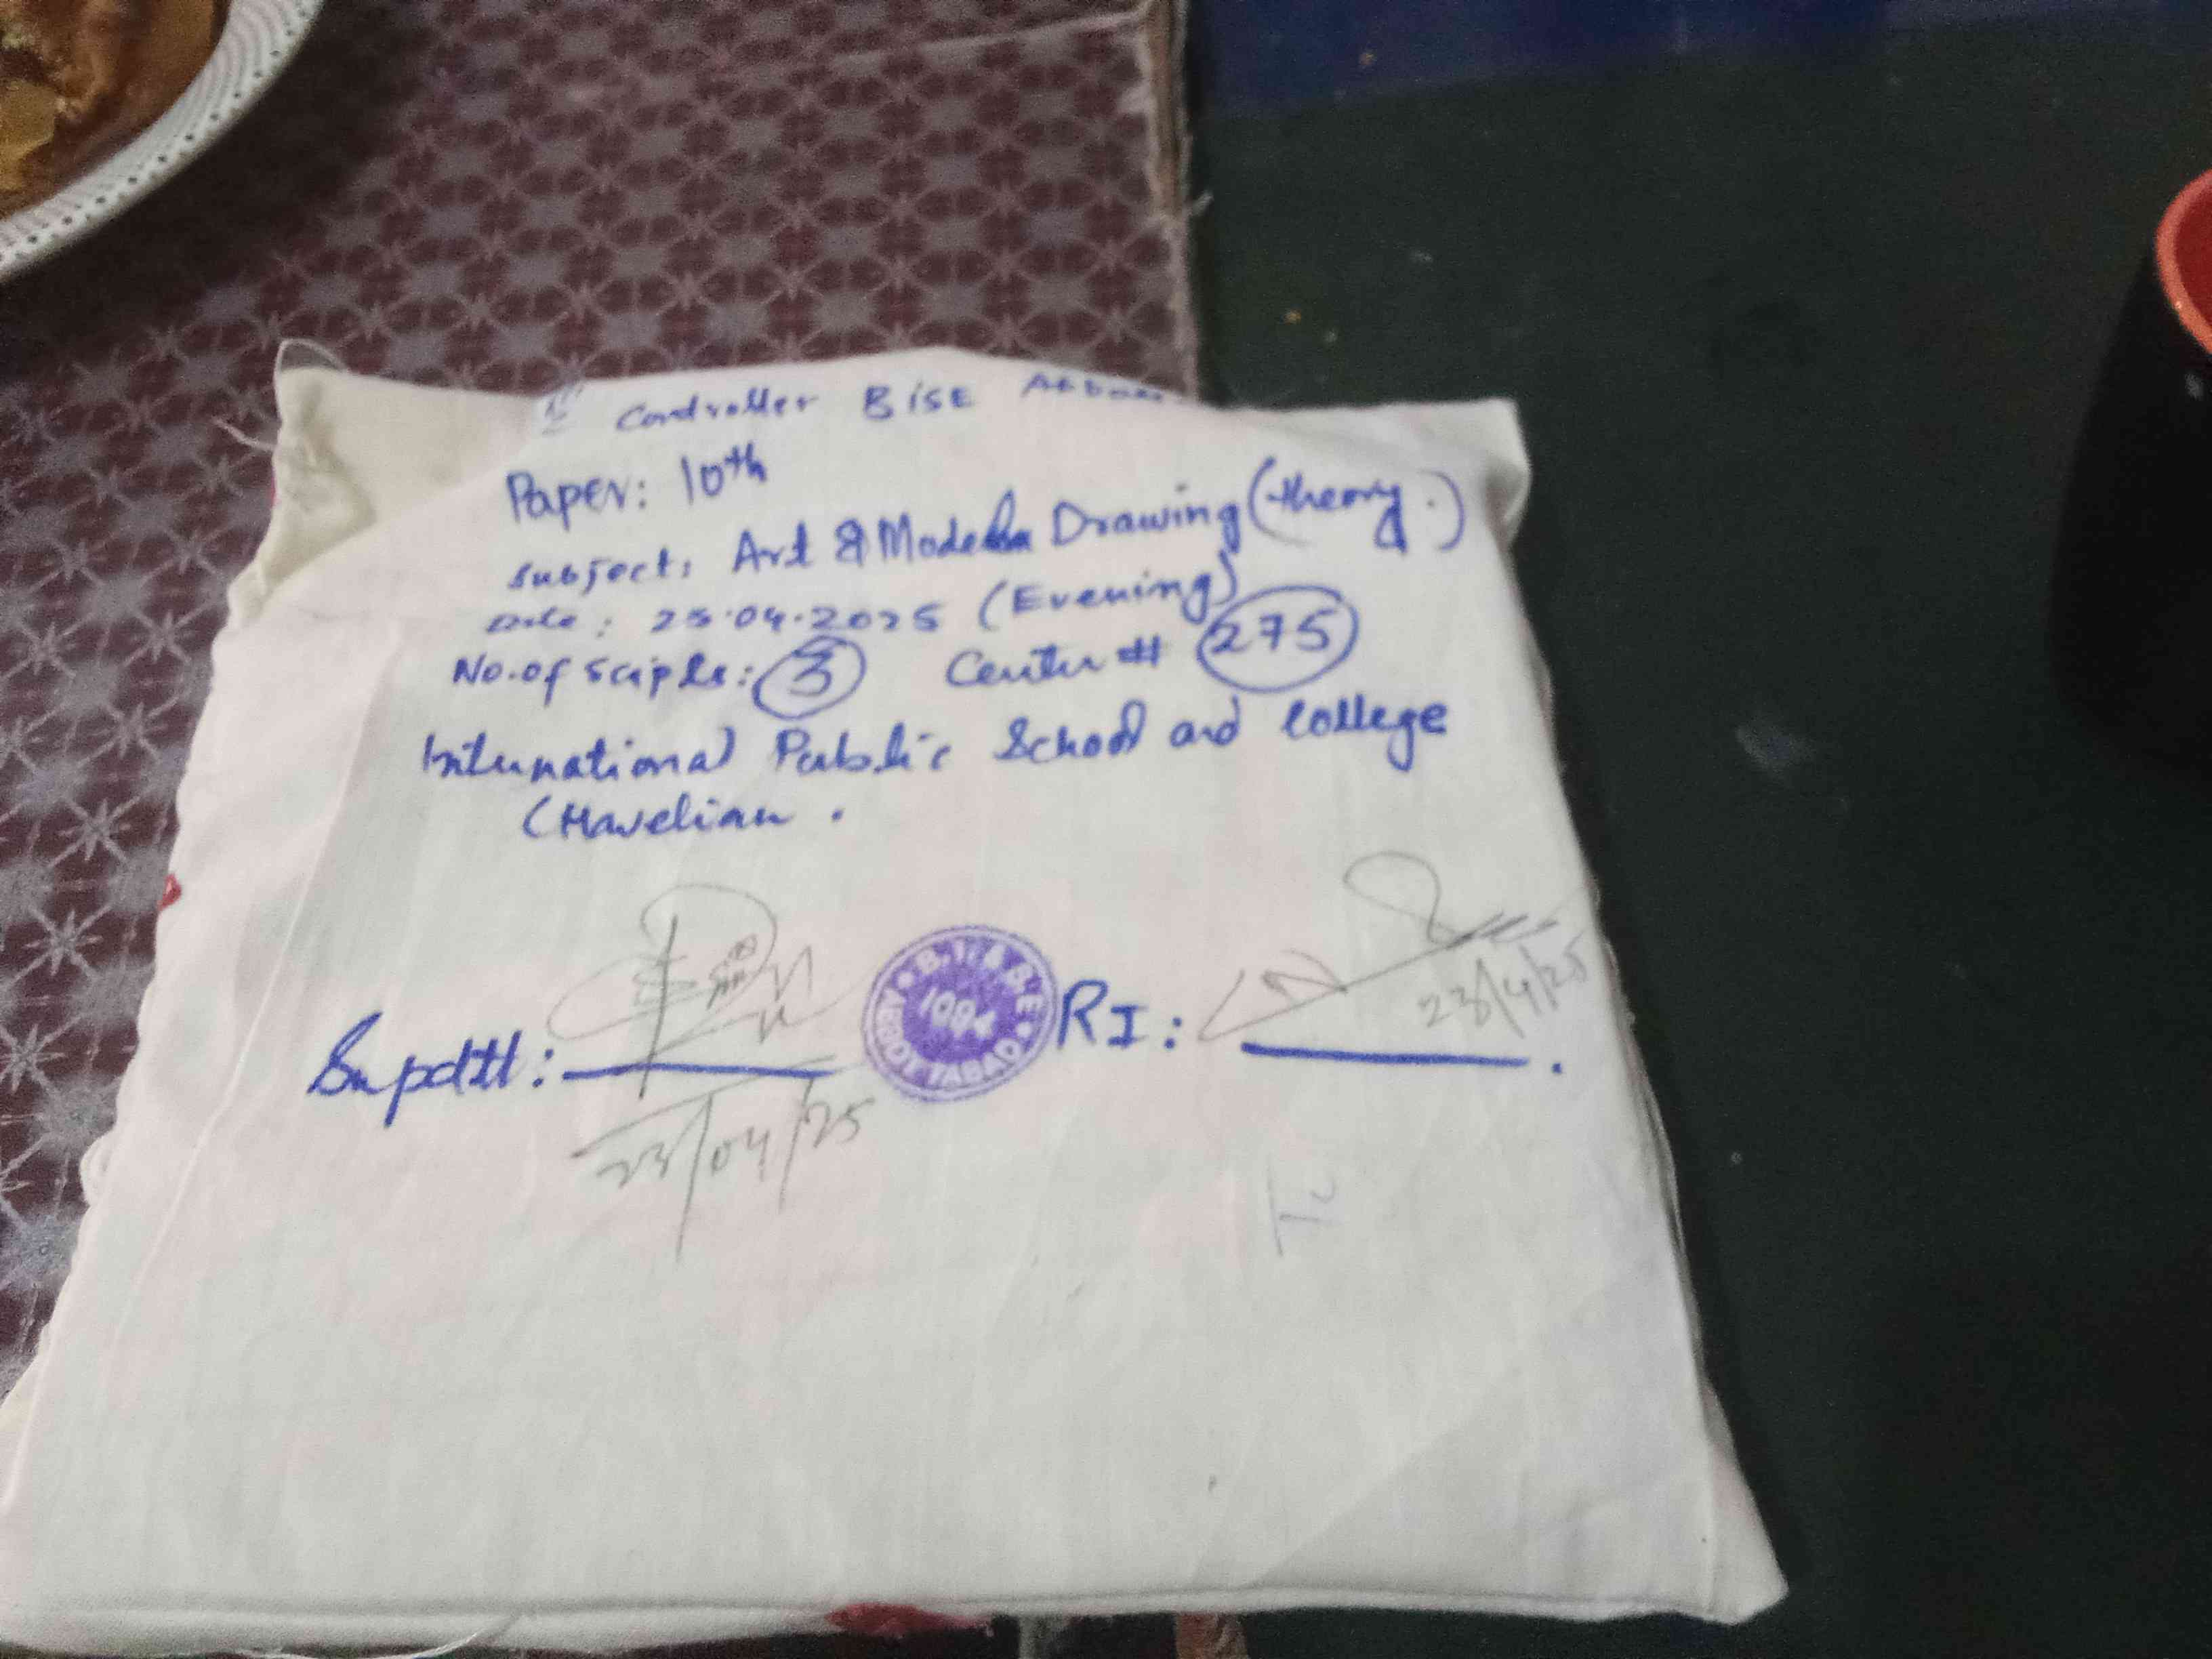 Controller BISE
Paper: 10th
Subject: Art & Model Drawing (theory.)
Date: 25.04.2025 (Evening)
No. of Sciples: 3 Center # 275
International Public School and College
(Havelian.
Supdtt:
B.I.& S.E. ABBOTTABAD
1994
RI:
23/4/25
23/04/25